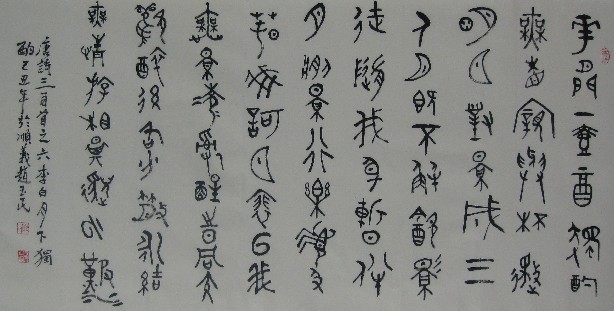 華間一壺酒獨酌
無相親舉杯邀
明月對景成三
人月既不解飲影
徒隨我身暫伴
月將景行樂須及
春我歌月裵回我
舞景零亂醒時同交
歡醉後各分散永結
無情遊相期邈雲漢
唐詩三百首之六李白月下獨
酌己丑年於順義趙玉民